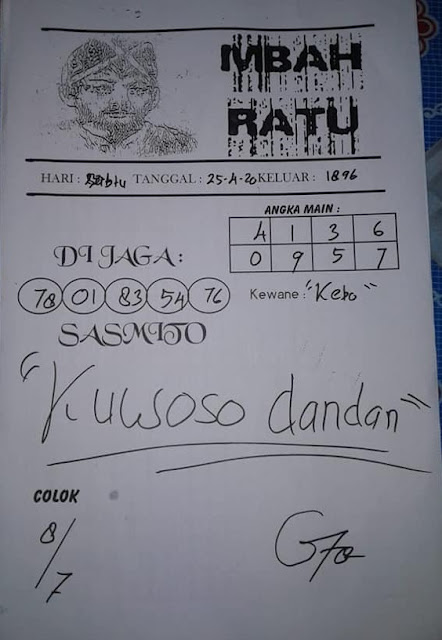 MBAH
RATU
HARI : Sabtu TANGGAL : 25-4-20 KELUAR : 1896
ANGKA MAIN :
4 1 3 6
0 9 5 7
DI JAGA :
78 01 83 54 76
Kewane : "Kebo"
SASMITO
"Kuwoso dandan"
COLOK
8/7